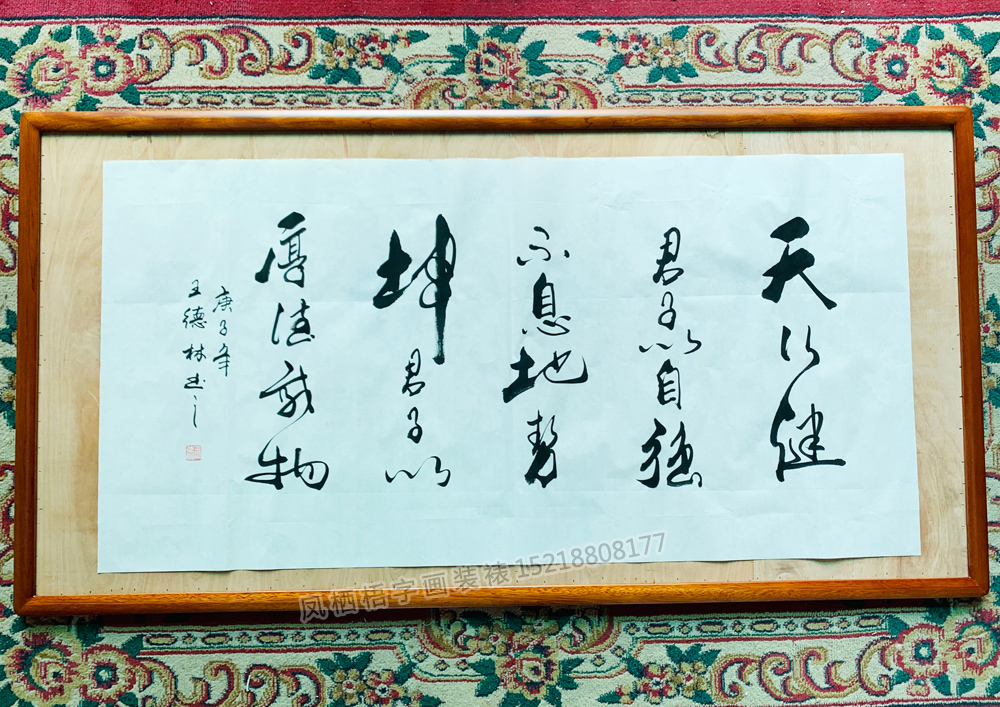 天行健
君子以自强
不息地势
坤君子以
厚德载物
庚子年
王德林书之
凤栖梧字画装裱 15218808177